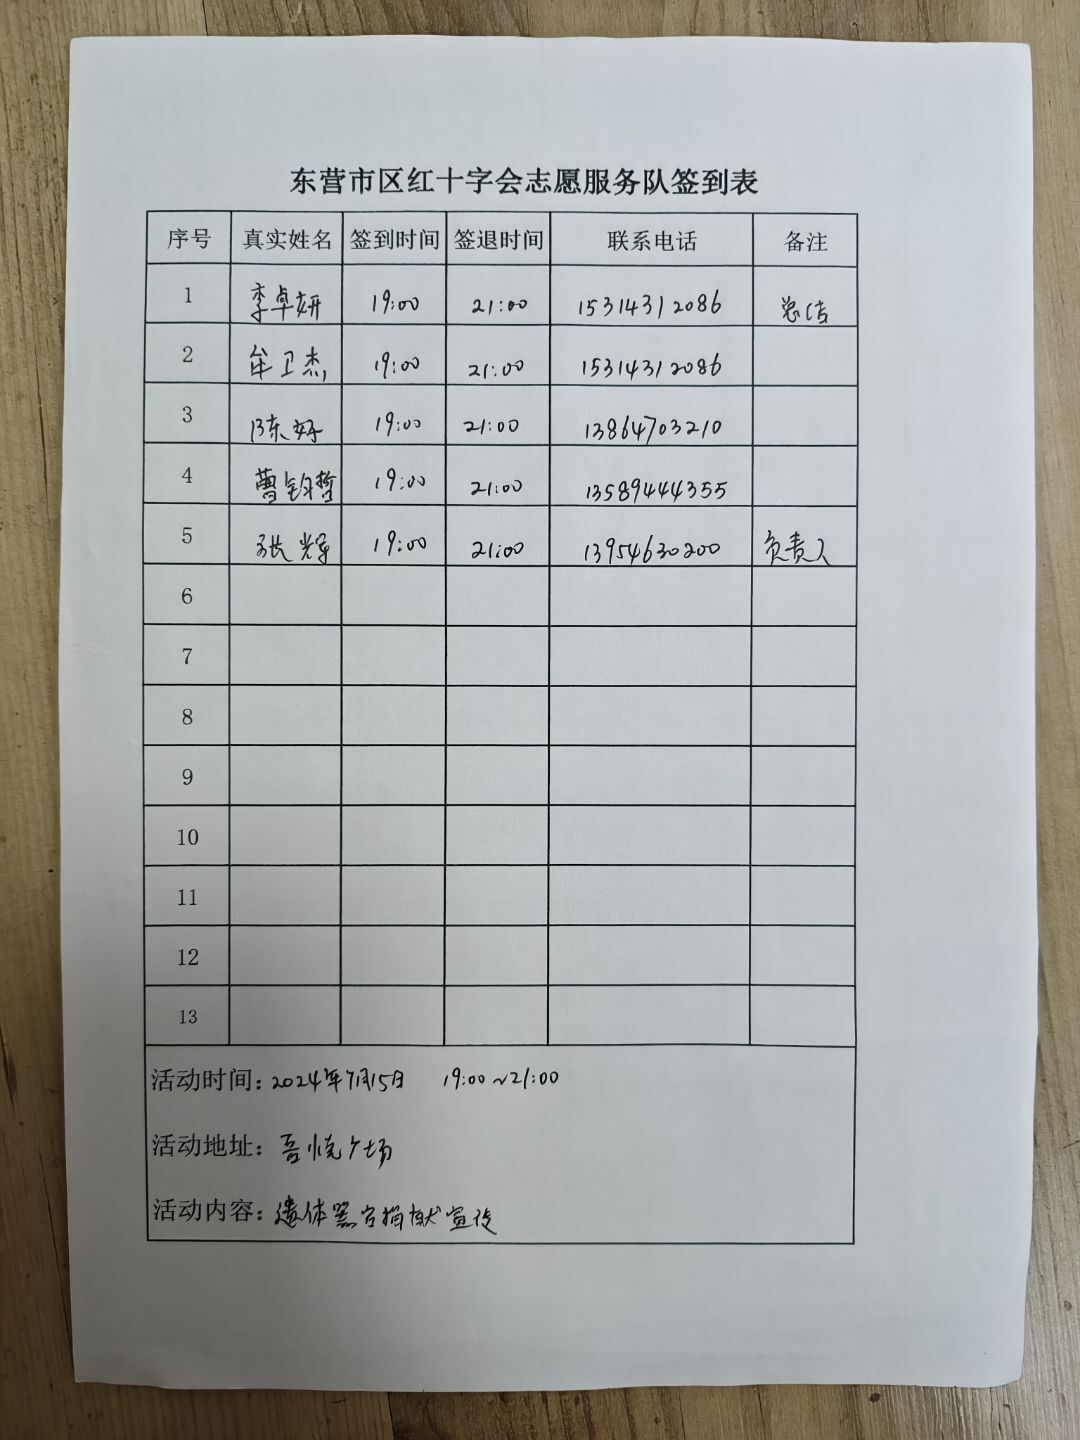 东营市区红十字会志愿服务队签到表
序号 真实姓名 签到时间 签退时间 联系电话 备注
1 李卓妍 19:00 21:00 15314312086 总结
2 牟卫杰 19:00 21:00 15314312086
3 陈好 19:00 21:00 13864703210
4 曹钧哲 19:00 21:00 13589444355
5 张辉 19:00 21:00 13954630200 负责人
6
7
8
9
10
11
12
13
活动时间：2024年7月15日 19:00~21:00
活动地址：吾悦广场
活动内容：遗体器官捐献宣传